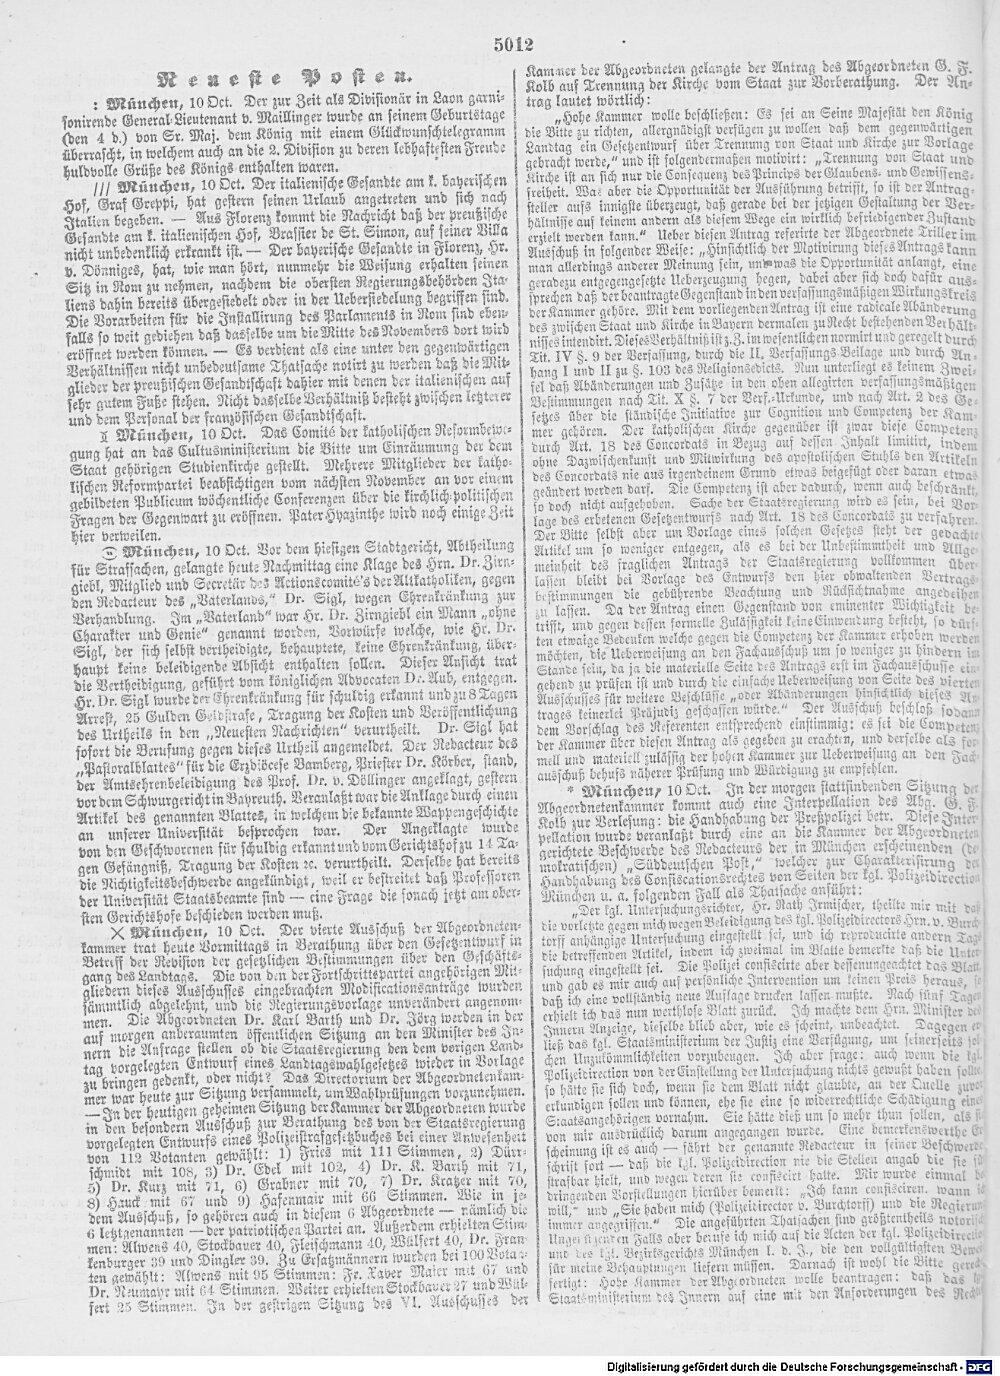 5012
Neueste Posten.
: München, 10 Oct. Der zur Zeit als Divisionär in Laon garni-
sonirende General-Lieutenant v. Maillinger wurde an seinem Geburtstage
(den 4 d.) von Sr. Maj. dem König mit einem Glückwunschtelegramm
überrascht, in welchem auch an die 2. Division zu deren lebhaftesten Freude
huldvolle Grüße des Königs enthalten waren.
/// München, 10 Oct. Der italienische Gesandte am k. bayerischen
Hof, Graf Greppi, hat gestern seinen Urlaub angetreten und sich nach
Italien begeben. — Aus Florenz kommt die Nachricht daß der preußische
Gesandte am k. italienischen Hof, Brassier de St. Simon, auf seiner Villa
nicht unbedenklich erkrankt ist. — Der bayerische Gesandte in Florenz, Hr.
v. Dönniges, hat, wie man hört, nunmehr die Weisung erhalten seinen
Sitz in Rom zu nehmen, nachdem die obersten Regierungsbehörden Ita-
liens dahin bereits übergesiedelt oder in der Uebersiedelung begriffen sind.
Die Vorarbeiten für die Installirung des Parlaments in Rom sind eben-
falls so weit gediehen daß dasselbe um die Mitte des Novembers dort wird
eröffnet werden können. — Es verdient als eine unter den gegenwärtigen
Verhältnissen nicht unbedeutsame Thatsache notirt zu werden daß die Mit-
glieder der preußischen Gesandtschaft dahier mit denen der italienischen auf
sehr gutem Fuße stehen. Nicht dasselbe Verhältniß besteht zwischen letzterer
und dem Personal der französischen Gesandtschaft.
München, 10 Oct. Das Comité der katholischen Reformbewe-
gung hat an das Cultusministerium die Bitte um Einräumung der dem
Staat gehörigen Studienkirche gestellt. Mehrere Mitglieder der katho-
lischen Reformpartei beabsichtigen vom nächsten November an vor einem
gebildeten Publicum wöchentliche Conferenzen über die kirchlich-politischen
Fragen der Gegenwart zu eröffnen. Pater Hyazinthe wird noch einige Zeit
hier verweilen.
München, 10 Oct. Vor dem hiesigen Stadtgericht, Abtheilung
für Strafsachen, gelangte heute Nachmittag eine Klage des Hrn. Dr. Zirn-
giebl, Mitglied und Secretär des Actionscomité's der Altkatholiken, gegen
den Redacteur des „Vaterlands,“ Dr. Sigl, wegen Ehrenkränkung zur
Verhandlung. Im „Vaterland“ war Hr. Dr. Zirngiebl ein Mann „ohne
Charakter und Genie“ genannt worden, Vorwürfe welche, wie Hr. Dr.
Sigl, der sich selbst vertheidigte, behauptete, keine Ehrenkränkung, über-
haupt keine beleidigende Absicht enthalten sollen. Dieser Ansicht trat
die Vertheidigung, geführt vom königlichen Advocaten Dr. Aub, entgegen.
Hr. Dr. Sigl wurde der Ehrenkränkung für schuldig erkannt und zu 8 Tagen
Arrest, 25 Gulden Geldstrafe, Tragung der Kosten und Veröffentlichung
des Urtheils in den „Neuesten Nachrichten“ verurtheilt. Dr. Sigl hat
sofort die Berufung gegen dieses Urtheil angemeldet. Der Redacteur des
„Pastoralblattes“ für die Erzdiöcese Bamberg, Priester Dr. Körber, stand,
der Amtsehrenbeleidigung des Prof. Dr. v. Döllinger angeklagt, gestern
vor dem Schwurgericht in Bayreuth. Veranlaßt war die Anklage durch einen
Artikel des genannten Blattes, in welchem die bekannte Wappengeschichte
an unserer Universität besprochen war. Der Angeklagte wurde
von den Geschwornen für schuldig erkannt und vom Gerichtshof zu 14 Ta-
gen Gefängniß, Tragung der Kosten ꝛc. verurtheilt. Derselbe hat bereits
die Nichtigkeitsbeschwerde angekündigt, weil er bestreitet daß Professoren
der Universität Staatsbeamte sind — eine Frage die sonach jetzt am ober-
sten Gerichtshofe beschieden werden muß.
× München, 10 Oct. Der vierte Ausschuß der Abgeordneten-
kammer trat heute Vormittags in Berathung über den Gesetzentwurf in
Betreff der Revision der gesetzlichen Bestimmungen über den Geschäfts-
gang des Landtags. Die von den der Fortschrittspartei angehörigen Mit-
gliedern dieses Ausschusses eingebrachten Modificationsanträge wurden
sämmtlich abgelehnt, und die Regierungsvorlage unverändert angenom-
men. Die Abgeordneten Dr. Karl Barth und Dr. Jörg werden in der
auf morgen anberaumten öffentlichen Sitzung an den Minister des In-
nern die Anfrage stellen ob die Staatsregierung den dem vorigen Land-
tag vorgelegten Entwurf eines Landtagswahlgesetzes wieder in Vorlage
zu bringen gedenkt, oder nicht? Das Directorium der Abgeordnetenkam-
mer war heute zur Sitzung versammelt, um Wahlprüfungen vorzunehmen.
— In der heutigen geheimen Sitzung der Kammer der Abgeordneten wurde
in den besondern Ausschuß zur Berathung des von der Staatsregierung
vorgelegten Entwurfs eines Polizeistrafgesetzbuches bei einer Anwesenheit
von 112 Votanten gewählt: 1) Fries mit 111 Stimmen, 2) Dürr-
schmidt mit 108, 3) Dr. Edel mit 102, 4) Dr. K. Barth mit 71,
5) Dr. Kurz mit 71, 6) Grabner mit 70, 7) Dr. Kratzer mit 70,
8) Hauck mit 67 und 9) Hafenmair mit 66 Stimmen. Wie in je-
dem Ausschuß, so gehören auch in diesem 6 Abgeordnete — nämlich die
6 letztgenannten — der patriotischen Partei an. Außerdem erhielten Stim-
men: Alwens 40, Stockbauer 40, Fleischmann 40, Wülfert 40, Dr. Fran-
kenburger 39 und Dingler 39. Zu Ersatzmännern wurden bei 100 Votan-
ten gewählt: Alwens mit 95 Stimmen: Fr. Xaver Maier mit 67 und
Dr. Neumayr mit 64 Stimmen. Weiter erhielten Stockbauer 27 und Wül-
fert 25 Stimmen. In der gestrigen Sitzung des VI. Ausschusses der
Kammer der Abgeordneten gelangte der Antrag des Abgeordneten G. F.
Kolb auf Trennung der Kirche vom Staat zur Vorberathung. Der An-
trag lautet wörtlich:
„Hohe Kammer wolle beschließen: Es sei an Seine Majestät den König
die Bitte zu richten, allergnädigst verfügen zu wollen daß dem gegenwärtigen
Landtag ein Gesetzentwurf über Trennung von Staat und Kirche zur Vorlage
gebracht werde,“ und ist folgendermaßen motivirt: „Trennung von Staat und
Kirche ist an sich nur die Consequenz des Princips der Glaubens- und Gewissens-
freiheit. Was aber die Opportunität der Ausführung betrifft, so ist der Antrag-
steller aufs innigste überzeugt, daß gerade bei der jetzigen Gestaltung der Ver-
hältnisse auf keinem andern als diesem Wege ein wirklich befriedigender Zustand
erzielt werden kann.“ Ueber diesen Antrag referirte der Abgeordnete Triller im
Ausschuß in folgender Weise: „Hinsichtlich der Motivirung dieses Antrags kann
man allerdings anderer Meinung sein, und was die Opportunität anlangt, eine
geradezu entgegengesetzte Ueberzeugung hegen, dabei aber sich doch dafür aus-
sprechen daß der beantragte Gegenstand in den verfassungsmäßigen Wirkungskreis
der Kammer gehöre. Mit dem vorliegenden Antrag ist eine radicale Abänderung
des zwischen Staat und Kirche in Bayern dermalen zu Recht bestehenden Verhält-
nisses intendirt. Dieses Verhältniß ist z. Z. im wesentlichen normirt und geregelt durch
Tit. IV §. 9 der Verfassung, durch die II. Verfassungs-Beilage und durch An-
hang I und II zu §. 103 des Religionsedicts. Nun unterliegt es keinem Zwei-
fel daß Abänderungen und Zusätze in den oben allegirten verfassungsmäßigen
Bestimmungen nach Tit. X §. 7 der Verf.-Urkunde, und nach Art. 2 des Ge-
setzes über die ständische Initiative zur Cognition und Competenz der Kam-
mer gehören. Der katholischen Kirche gegenüber ist zwar diese Competenz
durch Art. 18 des Concordats in Bezug auf dessen Inhalt limitirt, indem
ohne Dazwischenkunft und Mitwirkung des apostolischen Stuhls den Artikeln
des Concordats nie aus irgendeinem Grund etwas beigefügt oder daran etwas
geändert werden darf. Die Competenz ist aber dadurch, wenn auch beschränkt,
so doch nicht aufgehoben. Sache der Staatsregierung wird es sein, bei Vor-
lage des erbetenen Gesetzentwurfs nach Art. 18 des Concordats zu verfahren.
Der Bitte selbst aber um Vorlage eines solchen Gesetzes steht der gedachte
Artikel um so weniger entgegen, als es bei der Unbestimmtheit und Allge-
meinheit des fraglichen Antrags der Staatsregierung vollkommen über-
lassen bleibt bei Vorlage des Entwurfs den hier obwaltenden Vertrags-
bestimmungen die gebührende Beachtung und Rücksichtnahme angedeihen
zu lassen. Da der Antrag einen Gegenstand von eminenter Wichtigkeit be-
trifft, und gegen dessen formelle Zulässigkeit keine Einwendung besteht, so dürf-
ten etwaige Bedenken welche gegen die Competenz der Kammer erhoben werden
möchten, die Ueberweisung an den Fachausschuß um so weniger zu hindern im
Stande sein, da ja die materielle Seite des Antrags erst im Fachausschusse ein-
gehend zu prüfen ist und durch die einfache Ueberweisung von Seite des vierten
Ausschusses für weitere Beschlüsse „oder Abänderungen hinsichtlich dieses An-
trages keinerlei Präjudiz geschaffen würde.“ Der Ausschuß beschloß sodann
dem Vorschlag des Referenten entsprechend einstimmig: es sei die Competenz
der Kammer über diesen Antrag als gegeben zu erachten, und derselbe als for-
mell und materiell zulässig der hohen Kammer zur Ueberweisung an den Fach-
ausschuß behufs näherer Prüfung und Würdigung zu empfehlen.
* München, 10 Oct. In der morgen stattfindenden Sitzung der
Abgeordnetenkammer kommt auch eine Interpellation des Abg. G. F.
Kolb zur Verlesung: die Handhabung der Preßpolizei betr. Diese Inter-
pellation wurde veranlaßt durch eine an die Kammer der Abgeordneten
gerichtete Beschwerde des Redacteurs der in München erscheinenden (de-
mokratischen) „Süddeutschen Post,“ welcher zur Charakterisirung der
Handhabung des Confiscationsrechtes von Seiten der kgl. Polizeidirection
München u. a. folgenden Fall als Thatsache anführt:
„Der kgl. Untersuchungsrichter, Hr. Rath Irmischer, theilte mir mit daß
die vorletzte gegen mich wegen Beleidigung des kgl. Polizeidirectors Hrn. v. Burch-
torff anhängige Untersuchung eingestellt sei, und ich reproducirte andern Tags
die betreffenden Artikel, indem ich zweimal im Blatte bemerkte daß die Unter-
suchung eingestellt sei. Die Polizei confiscirte aber dessenungeachtet das Blatt,
und gab es mir auch auf persönliche Intervention um keinen Preis heraus, so
daß ich eine vollständig neue Auflage drucken lassen mußte. Nach fünf Tagen
erhielt ich das nun werthlose Blatt zurück. Ich machte dem Hrn. Minister des
Innern Anzeige, dieselbe blieb aber, wie es scheint, unbeachtet. Dagegen er-
ließ das kgl. Staatsministerium der Justiz eine Verfügung, um seinerseits sol-
chen Unzukömmlichkeiten vorzubeugen. Ich aber frage: auch wenn die kgl.
Polizeidirection von der Einstellung der Untersuchung nichts gewußt haben sollte,
so hätte sie sich doch, wenn sie dem Blatt nicht glaubte, an der Quelle zuvor
erkundigen sollen und können, ehe sie eine so widerrechtliche Schädigung eines
Staatsangehörigen vornahm. Sie hätte dieß um so mehr thun sollen, als sie
von mir ausdrücklich darum angegangen wurde. Eine bemerkenswerthe Er-
scheinung ist es auch — fährt der genannte Redacteur in seiner Beschwerde-
schrift fort — daß die kgl. Polizeidirection nie die Stellen angab die sie für
strafbar hielt, und wegen deren sie confiscirt hatte. Mir wurde einmal bei
dringenden Vorstellungen hierüber bemerkt: „Ich kann confisciren, wann ich
will,“ und „Sie haben mich (Polizeidirector v. Burchtorff) und die Regierung
immer angegriffen.“ Die angeführten Thatsachen sind größtentheils notorisch.
Ungenügenden Falls aber berufe ich mich auf die Acten der kgl. Polizeidirection
und des kgl. Bezirksgerichts München l. d. J., die den vollgültigsten Beweis
für meine Behauptungen liefern müssen. Darnach ist wohl die Bitte gerecht-
fertigt: Hohe Kammer der Abgeordneten wolle beantragen: daß das kgl.
Staatsministerium des Innern auf eine mit den Anforderungen des Rechts
Digitalisierung gefördert durch die Deutsche Forschungsgemeinschaft - DFG